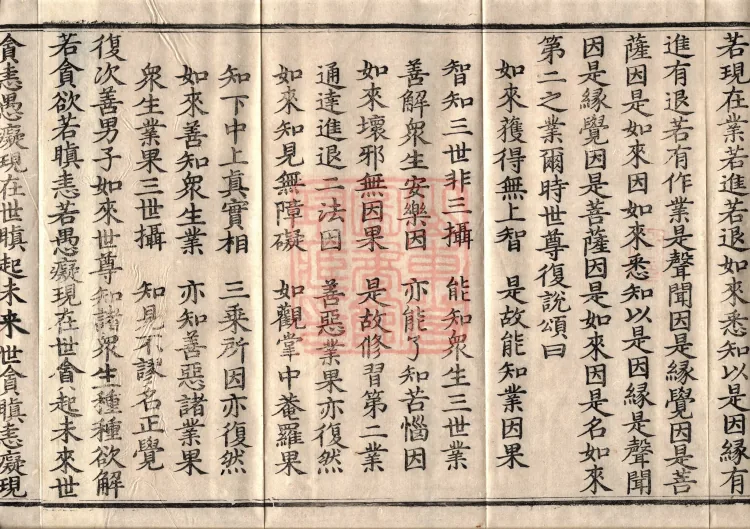 若現在業若進若退如來悉知以是因緣有
進有退若有作業是聲聞因是緣覺因是菩
薩因是如來因如來悉知以是因緣是聲聞
因是緣覺因是菩薩因是如來因是名如來
第二之業爾時世尊復說頌曰
如來獲得無上智 是故能知業因果
智知三世非三攝 能知衆生三世業
善解衆生安樂因 亦能了知苦惱因
如來壞邪無因果 是故修習第二業
通達進退二法因 善惡業果亦復然
如來知見無障礙 如觀掌中菴羅果
知下中上真實相 三乘所因亦復然
如來善知衆生業 亦知善惡諸業果
衆生業果三世攝 知見不謬名正覺
復次善男子如來世尊知諸衆生種種欲解
若貪欲若瞋恚若愚癡現在世貪起未來世
貪恚愚癡現在世瞋起未來世貪瞋恚癡現